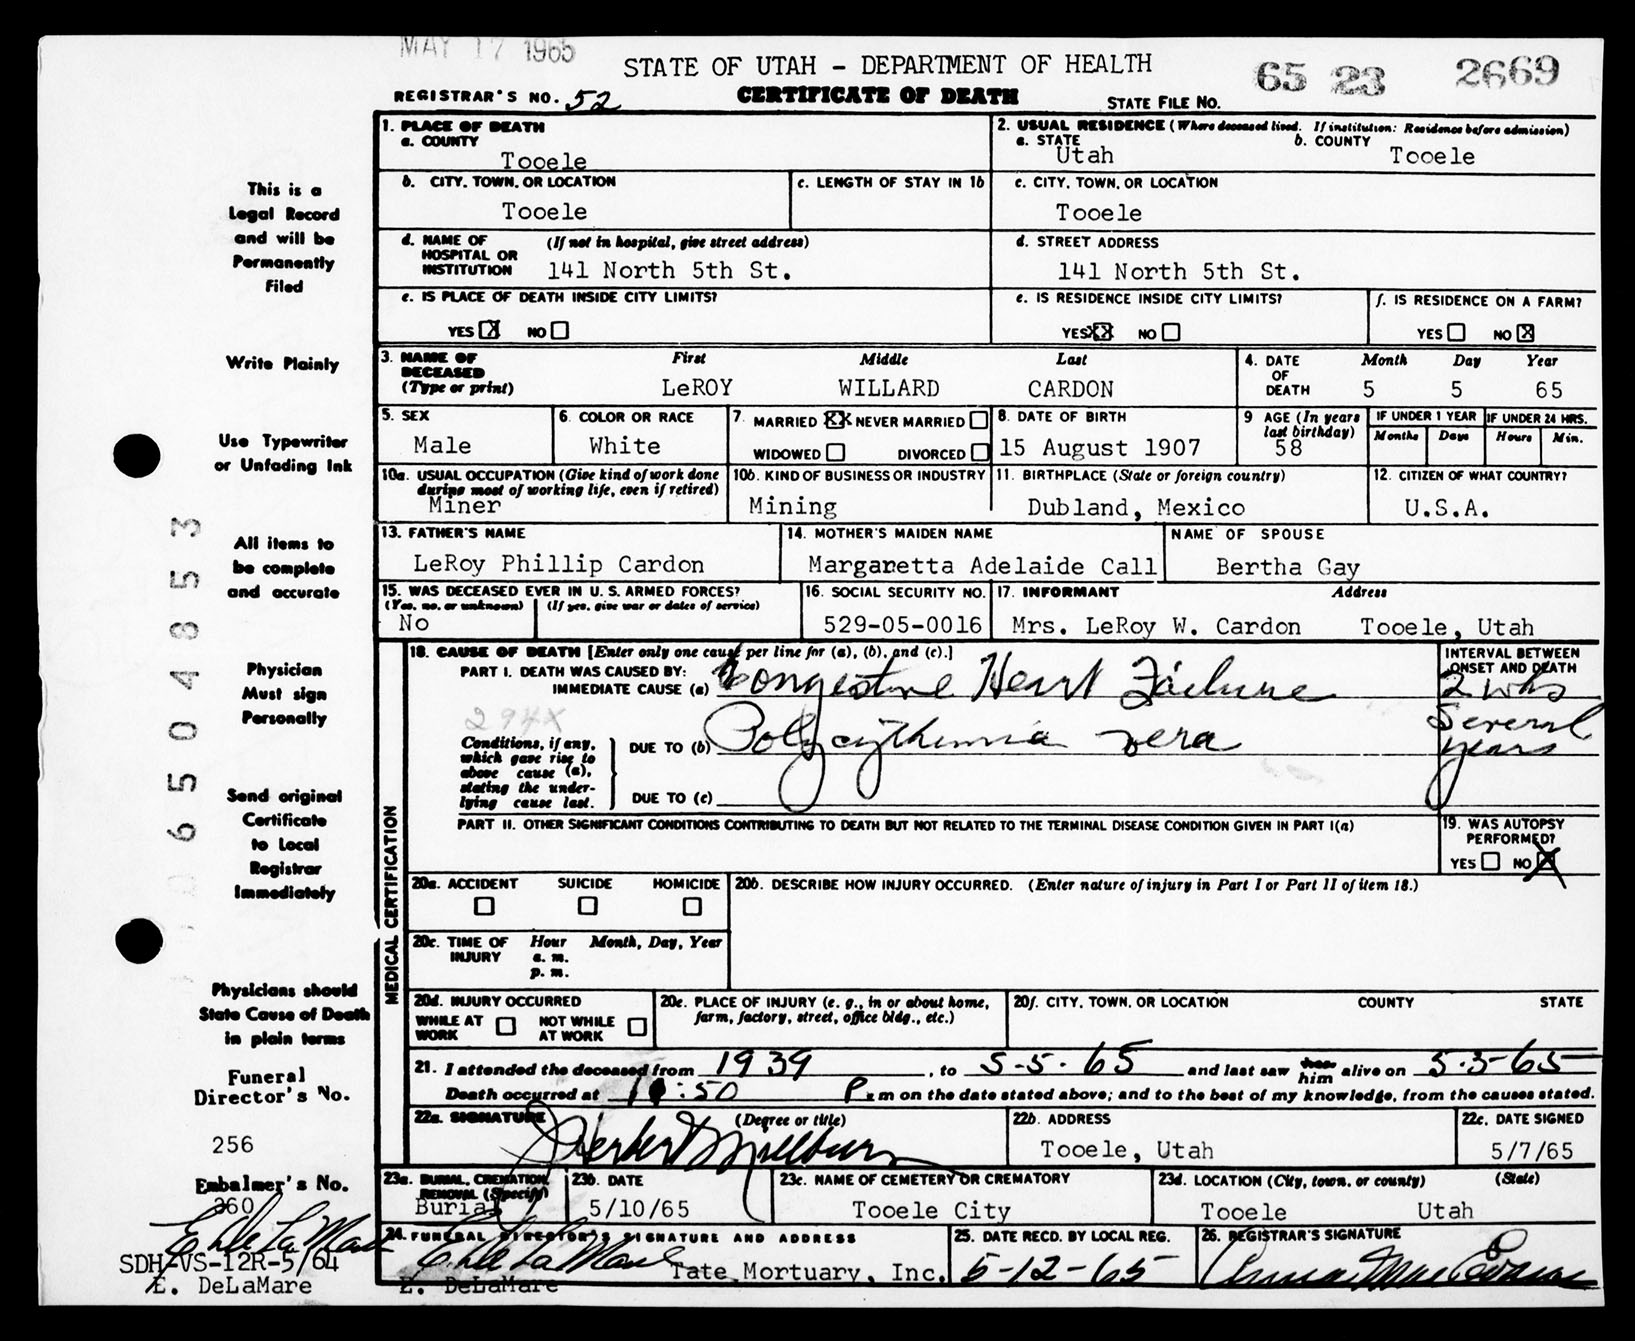 MAY 17 1965
STATE OF UTAH - DEPARTMENT OF HEALTH
65 23 2669
REGISTRAR'S NO. 52
CERTIFICATE OF DEATH
STATE FILE NO.
1. PLACE OF DEATH
a. COUNTY
Tooele
2. USUAL RESIDENCE (Where deceased lived. If institution: Residence before admission)
a. STATE
Utah
b. COUNTY
Tooele
b. CITY, TOWN, OR LOCATION
Tooele
c. LENGTH OF STAY IN 1b
c. CITY, TOWN, OR LOCATION
Tooele
d. NAME OF HOSPITAL OR INSTITUTION
(If not in hospital, give street address)
141 North 5th St.
d. STREET ADDRESS
141 North 5th St.
e. IS PLACE OF DEATH INSIDE CITY LIMITS?
YES X NO
e. IS RESIDENCE INSIDE CITY LIMITS?
YES XX NO
f. IS RESIDENCE ON A FARM?
YES NO X
3. NAME OF DECEASED
(Type or print)
First Middle Last
LeROY WILLARD CARDON
4. DATE OF DEATH
Month Day Year
5 5 65
5. SEX
Male
6. COLOR OR RACE
White
7. MARRIED XX NEVER MARRIED
WIDOWED DIVORCED
8. DATE OF BIRTH
15 August 1907
9 AGE (In years last birthday)
58
IF UNDER 1 YEAR
Months Days
IF UNDER 24 HRS.
Hours Min.
10a. USUAL OCCUPATION (Give kind of work done
during most of working life, even if retired)
Miner
10b. KIND OF BUSINESS OR INDUSTRY
Mining
11. BIRTHPLACE (State or foreign country)
Dubland, Mexico
12. CITIZEN OF WHAT COUNTRY?
U.S.A.
13. FATHER'S NAME
LeRoy Phillip Cardon
14. MOTHER'S MAIDEN NAME
Margaretta Adelaide Call
NAME OF SPOUSE
Bertha Gay
15. WAS DECEASED EVER IN U.S. ARMED FORCES?
(Yes, no, or unknown) (If yes, give war or dates of service)
No
16. SOCIAL SECURITY NO.
529-05-0016
17. INFORMANT Address
Mrs. LeRoy W. Cardon Tooele, Utah
MEDICAL CERTIFICATION
18. CAUSE OF DEATH [Enter only one cause per line for (a), (b), and (c).]
PART I. DEATH WAS CAUSED BY:
IMMEDIATE CAUSE (a) Congestive Heart Failure
INTERVAL BETWEEN ONSET AND DEATH
2 wks
294X
Conditions, if any, which gave rise to above cause (a), stating the underlying cause last.
DUE TO (b) Polycythemia vera
Several years
DUE TO (c)
PART II. OTHER SIGNIFICANT CONDITIONS CONTRIBUTING TO DEATH BUT NOT RELATED TO THE TERMINAL DISEASE CONDITION GIVEN IN PART I(a)
19. WAS AUTOPSY PERFORMED?
YES NO X
20a. ACCIDENT SUICIDE HOMICIDE
20b. DESCRIBE HOW INJURY OCCURRED. (Enter nature of injury in Part I or Part II of item 18.)
20c. TIME OF INJURY
Hour Month, Day, Year
a. m.
p. m.
20d. INJURY OCCURRED
WHILE AT WORK NOT WHILE AT WORK
20e. PLACE OF INJURY (e. g., in or about home,
farm, factory, street, office bldg., etc.)
20f. CITY, TOWN, OR LOCATION COUNTY STATE
21. I attended the deceased from 1939, to 5-5-65 and last saw him alive on 5-3-65
Death occurred at :50 P. m on the date stated above; and to the best of my knowledge, from the causes stated.
22a. SIGNATURE (Degree or title)
Herbert Milburn
22b. ADDRESS
Tooele, Utah
22c. DATE SIGNED
5/7/65
23a. BURIAL, CREMATION, REMOVAL (Specify)
Burial
23b. DATE
5/10/65
23c. NAME OF CEMETERY OR CREMATORY
Tooele City
23d. LOCATION (City, town, or county) (State)
Tooele Utah
24. FUNERAL DIRECTOR'S SIGNATURE AND ADDRESS
E. DeLaMare
Tate Mortuary, Inc.
E. DeLaMare
25. DATE RECD. BY LOCAL REG.
5-12-65
26. REGISTRAR'S SIGNATURE
This is a
Legal Record
and will be
Permanently
Filed
Write Plainly
Use Typewriter
or Unfading Ink
All items to
be complete
and accurate
Physician
Must sign
Personally
Send original
Certificate
to Local
Registrar
Immediately
Physicians should
State Cause of Death
in plain terms
Funeral
Director's No.
256
Embalmer's No.
360
E. DeLaMare
SDH-VS-12R-5/64
E. DeLaMare
6504853